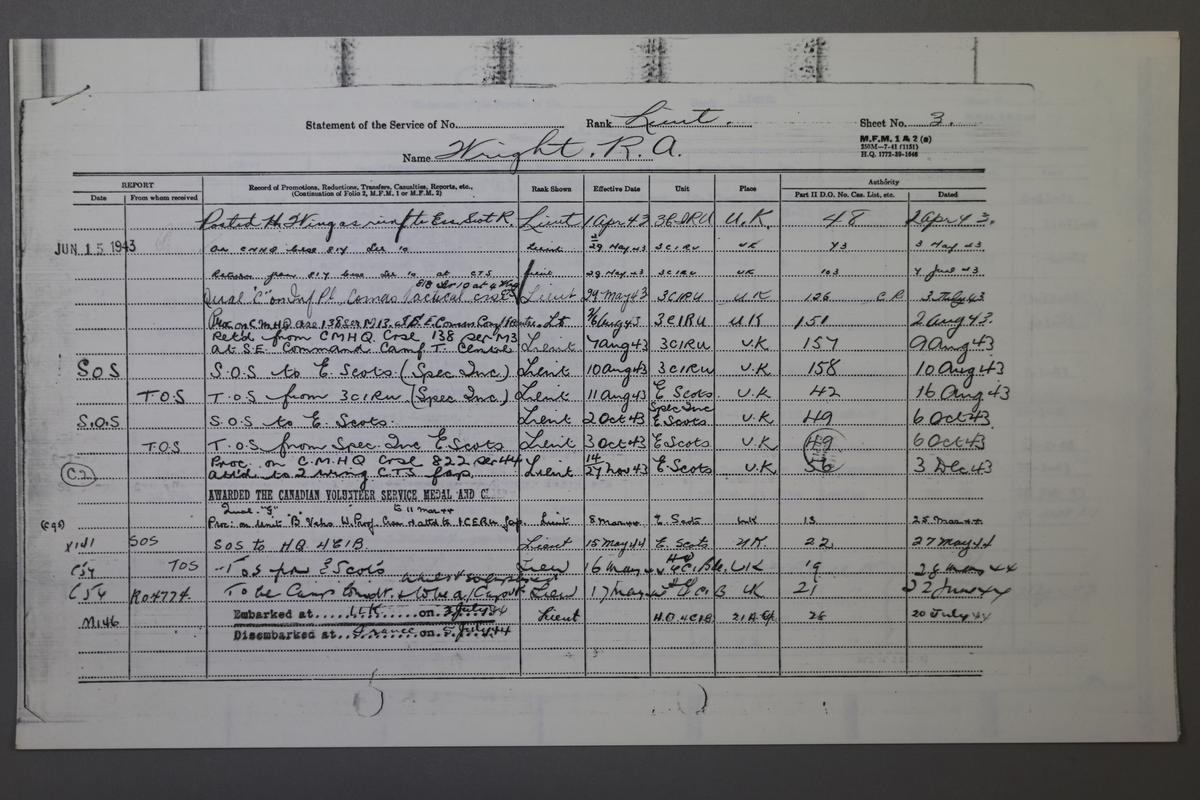 Statement of the Service of No. Rank Lieut. Sheet No. 3.
M.F.M. 1 & 2 (a)
250M—7-41 (1151)
H.Q. 1772-39-1646
Name Wright, R. A.
REPORT Record of Promotions, Reductions, Transfers, Casualties, Reports, etc., Rank Shown Effective Date Unit Place Authority
Date From whom received (Continuation of Folio 2, M.F.M. 1 or M.F.M. 2) Part II D.O. No. Cas. List, etc. Dated
Posted to Wing as rinf to Ess Scot R. Lieut 1 Apr 43 U.K. 48 2 Apr 43.
JUN 15 1943 on CMHQ 814 Ser 10 Lieut May 43 3CIRU UK 43 3 May 43
Return from 814 Ser 10 at CTS Lieut 29 May 43 3CIRU UK 103 4 June 43
818 Ser 10 at
Qual "C" on Inf Pl Comds Tactical crse Lieut 29 May 43 3CIRU U.K 126 C.R. 3 July 43
Proc on C.M.HQ crse 138 Ser M3 Lt Aug 43 3CIRU U.K 151 2 Aug 43.
Ret'd from CMHQ Crse 138 ser M3
at S.E. Command Camf. T. Centre Lieut 7 Aug 43 3CIRU U.K 157 9 Aug 43
SOS S.O.S to E. Scots (Spec Inc.) Lieut 10 Aug 43 3CIRU U.K 158 10 Aug 43
T.O.S T.O.S from 3CIRU (Spec Inc.) Lieut 11 Aug 43 E Scots. U.K 42 16 Aug 43
S.O.S S.O.S to E. Scots. Lieut 2 Oct 43 Spec Inc E Scots. U.K 49 6 Oct 43
TOS T.O.S from Spec. Inc E. Scots Lieut 3 Oct 43 E Scots U.K 49 6 Oct 43
C.2 Proc. on C.M.HQ Crse 822 ser 44
attd to 2 wing C.T.S. Lieut 14/27 Nov 43 E. Scots U.K 56 3 Dec 43
AWARDED THE CANADIAN VOLUNTEER SERVICE MEDAL AND CL
Qual. "G" to 11 Mar 44
Proc: on "B" W. Proof. Lieut 5 Mar 44 E. Scots UK 13 25 Mar 44
X141 SOS SOS to HQ 4CIB. Lieut 15 May 44 E. Scots UK. 22 27 May 44
C54 TOS TOS E Scots Lieut 16 May UK 19 44
C54 R04774 To be Camp Lieut 17 May UK 21 June 44
M146 Embarked at UK on 3 July 44 Lieut H.Q. 4CIB. 21 A Gp 28 20 July 44
Disembarked at France on 5 July 44